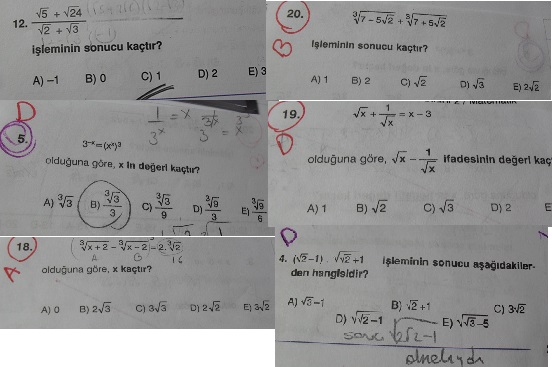 12. √5 + √24
√2 + √3
işleminin sonucu kaçtır?
A) –1 B) 0 C) 1 D) 2 E) 3
20. ∛7 – 5√2 + ∛7 + 5√2
B
işleminin sonucu kaçtır?
A) 1 B) 2 C) √2 D) √3 E) 2√2
D
5.
3⁻ˣ=(xˣ)³
olduğuna göre, x in değeri kaçtır?
A) ∛3 B) ∛3/3 C) ∛3/9 D) ∛9/3 E) ∛9/6
19. √x + 1/√x = x – 3
D
olduğuna göre, √x – 1/√x ifadesinin değeri kaç
A) 1 B) √2 C) √3 D) 2 E
18. ∛x+2 – ∛x–2 = 2.∛2
A
olduğuna göre, x kaçtır?
A) 0 B) 2√3 C) 3√3 D) 2√2 E) 3√2
D
4. (√2–1) . √√2+1 işleminin sonucu aşağıdakiler-
den hangisidir?
A) √3–1 B) √2+1 C) 3√2
D) √√2–1 E) √√3–5
sonuç √2√2–1
olmalıydı